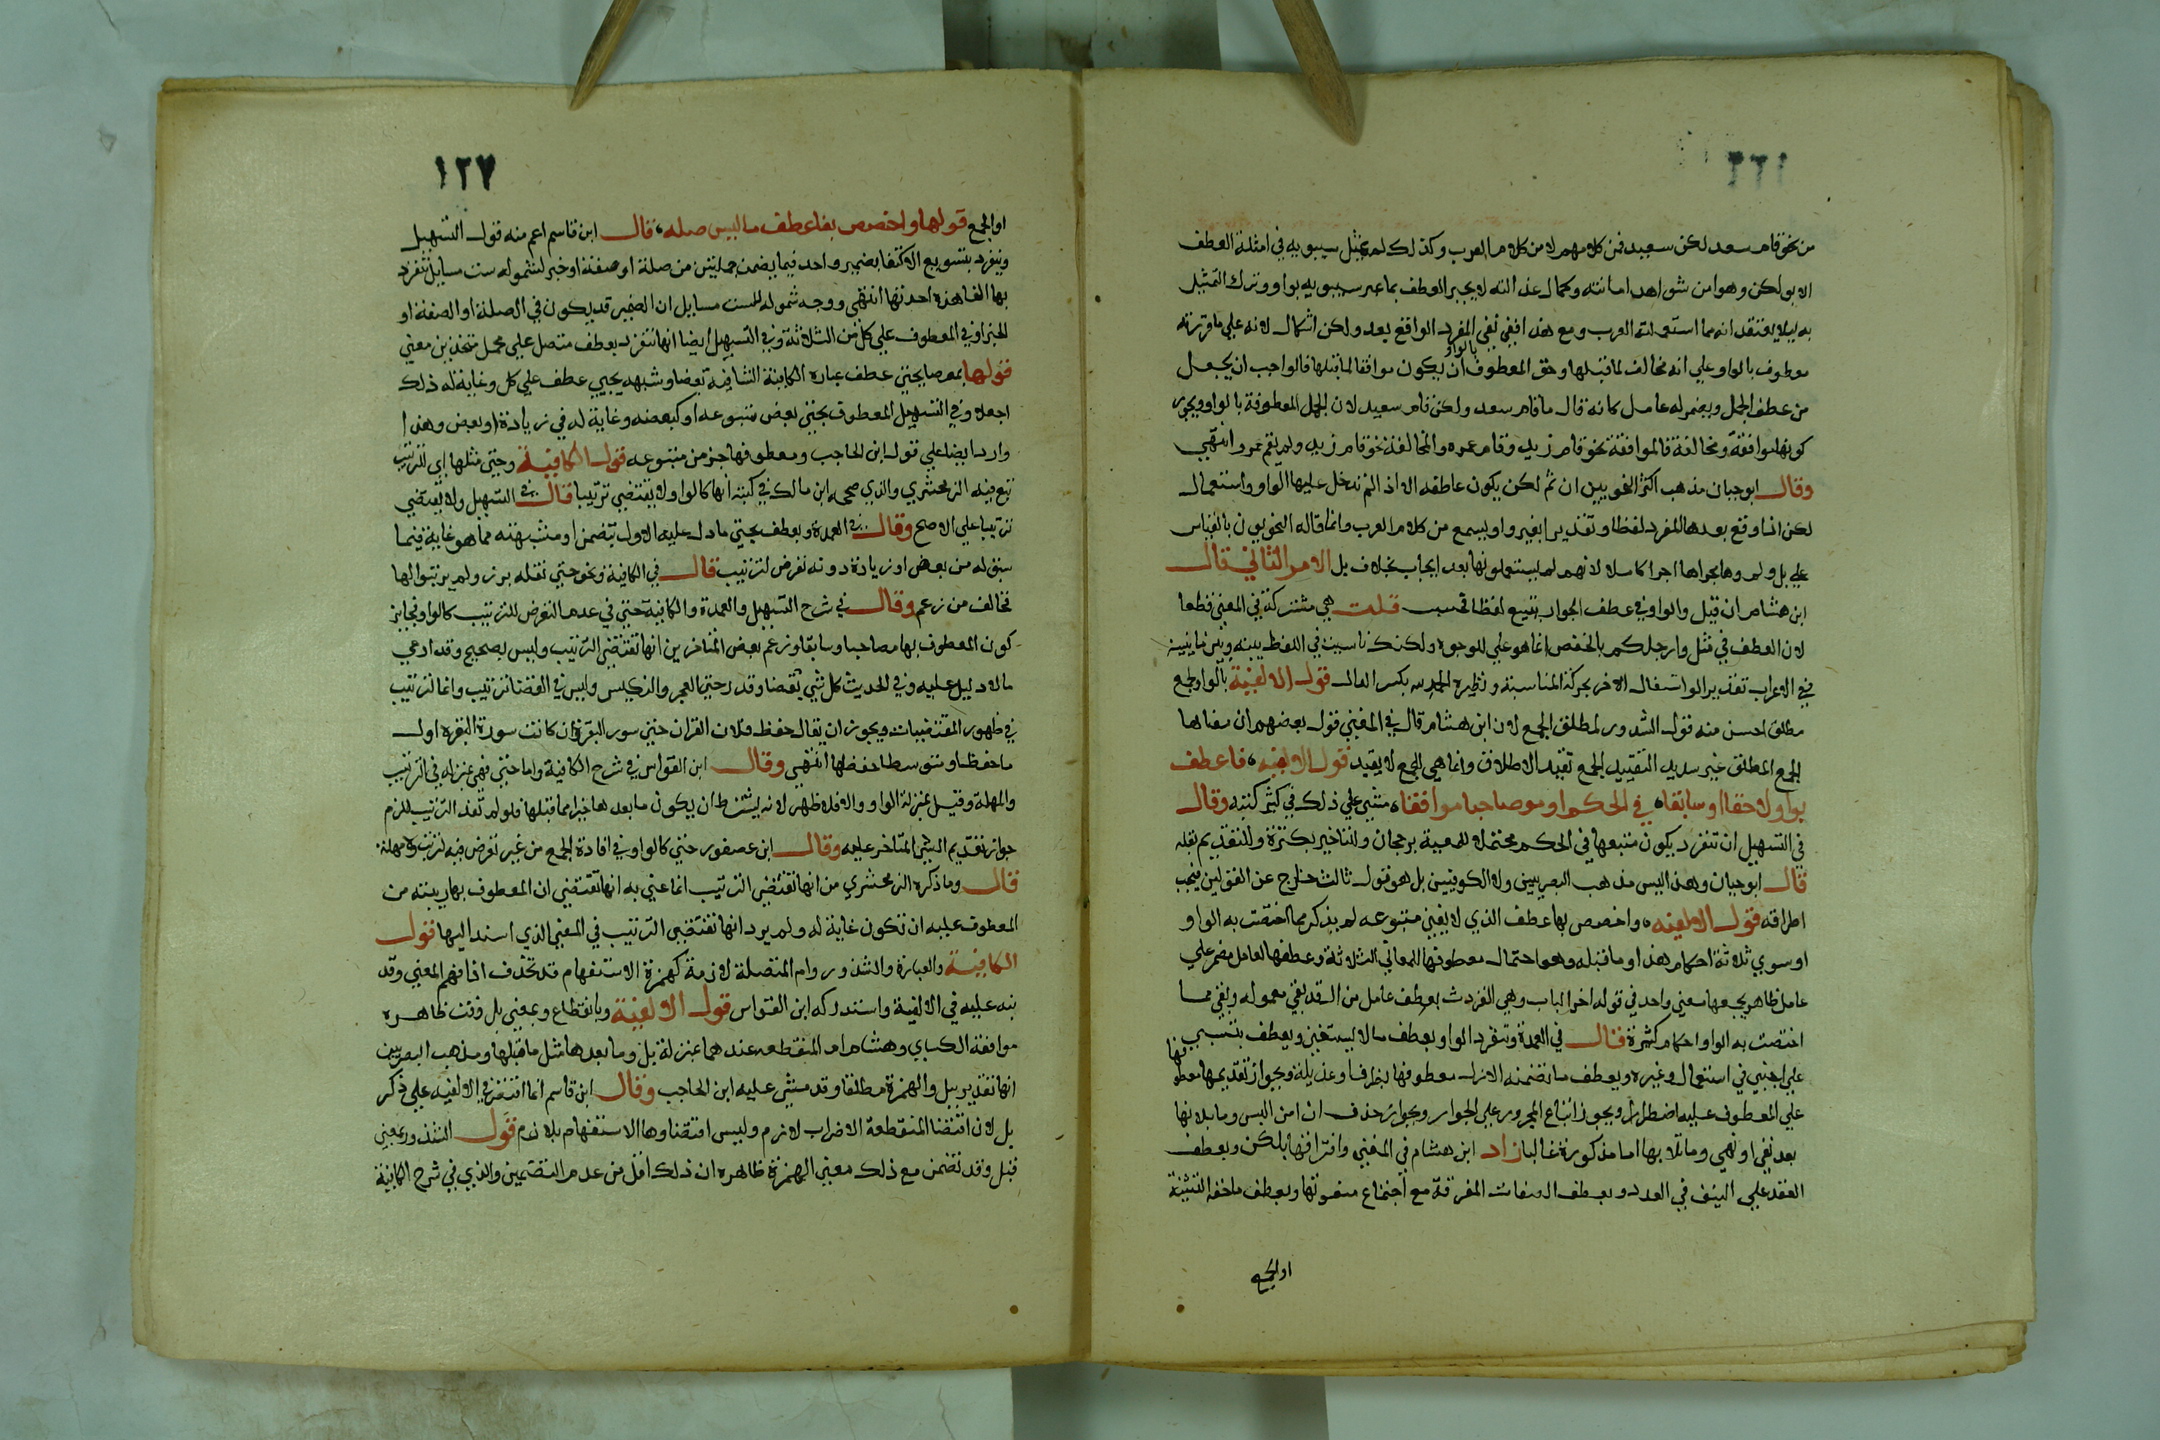 من نحو قام سعد لكن سعيد فمن كلامهم لا من كلام العرب وكذلك لم يمثل سيبويه في امثلة العطف
الا بولكن وهو من شواهد امانته وكمال عدالته لا يجيز العطف بها عير سيبويه بواو وترك التمثيل
به ليلا يعتقد انه مما استعملته العرب ومع هذا ففي نفي المفرد الواقع بعد ولكن اشكال لانه على ما قررته
معطوف بالواو على انه مخالف لما قبلها وحق المعطوف بالواو ان يكون موافقا لما قبلها فالواجب ان يجعل
من عطف الجمل ويضمر له عامل كانه قال ما قام سعد ولكن قام سعيد لان الجمل المعطوفة بالواو ويجوز
كونها موافقة ومخالفة فالموافقة نحو قام زيد وقام عمرو والمخالفة نحو قام زيد ولم يقم عمرو انتهى
وقال ابو حيان مذهب اكثر النحويين ان ثم لكن يكون عاطفه الا اذا لم تدخل عليها الواو واستعمال
لكن اذا وقع بعدها المفرد لفظا وتقديرا بغير واو لم يسمع من كلام العرب وانما قاله النحويون بالقياس
على بل ولم وها مجراها اجرا كاملا لانهم لم يستعملونها بعد ايجاب بخلاف بل الامر الثاني قال
ابن هشام ان قيل والواو في عطف الجوار تتبيع لفظا فحسب قلت هي مشتركة في المعنى قطعا
لان العطف في مثل وارجلكم بالخفض انما هو على للوجوه ولكنك ناسبت في اللفظ بينه وبين ما بينه
في الاعراب تقدير الواشتغال الاخر بحركة المناسبة ونظيره الحمد لله بكسر الدال قول الالفية بالواو لجمع
مطلق احسن منه قول الشذور لمطلق الجمع لان ابن هشام قال في المغني قول بعضهم ان معناها
الجمع المطلق غير سديد التقييد الجمع تقييد الاطلاق وانما هي للجمع لا يقيد قول الالفية فاعطف
بواو لاحقا او سابقا في الحكم او مصاحبا موافقا مشى على ذلك في كثير كتبه وقال
في التسهيل ان تنفرد يكون متبعها في الحكم محتملا للمعية برجحان وللتاخير بكثرة وللتقديم بقلة
قال ابو حيان وهذا ليس مذهب البصريين ولا الكوفيين بل هو قول ثالث خارج عن القولين فيجب
اطراقه قول الالفية واخصص بها عطف الذي لا يغني متبوعه لم يذكر مما اختصت به الواو
او سوي ثلاثة احكام هذا وما قبله وهو احتمال معطوفها للمعاني الثلاثة وعطفها العامل مضمر على
عامل ظاهر يجمعها معنى واحد في قوله اخر الباب وهي انفردت بعطف عامل من ال قد بقي معموله وبقي مما
اختصت به الواو احكام كثيرة قال في العمدة وتنفرد الواو بعطف ما لا يستغنى ويعطف بتسببي
على اجنبي في استعمال وغيره وبعطف ما تضمنه الاول معطوفها بظرف وعديله وبجواز تقديمها معطوفها
على المعطوف عليه اضطرارا ويجوز اتباع المجرور على الجوار وبجواز حذف ان امن اللبس وما بلانها
بعد نفي او نهي وما تلا بها اما مذكورة غالبا زاد ابن هشام في المغني واقترانها بلكن وبعطف
العقد على النيف في العدد وبعطف الصفات المفرقة مع اجتماع منعوتها وبعطف ما حقه التثنية
او الجمع
١٢٧
او الجمع قولها واخصص بفا عطف ما ليس صله قال ابن قاسم اعم منه قول التسهيل
وتنفرد بتسويغ الاكتفا بضمير واحد فيما يضمن جملتين من صلة او صفة او خبر لشموله ست مسايل تنفرد
بها الفا هذه احدتها انتهى ووجه شموله للست مسايل ان الضمير قد يكون في الصلة او الصفة او
الخبر او في المعطوف على كل من الثلاثة وفي التسهيل ايضا انها تنفرد بعطف متصل على مجمل متحدين معنى
قولها بعضا بحتى عطف عبارة الكافية الشافية بعضا وشبهه بحتى عطف على كل وغاية له ذلك
اجعله وفي التسهيل المعطوف بحتى بعض متبوعه او كبعضه وغاية له في زيادة او بعض وهذا
وارد ايضا على قول ابن الحاجب ومعطوفها جز من متبوعه قول الكافية وحتى مثلها اي للترتيب
تبع فيه الزمخشري والذي صححه ابن مالك في كتبه انها كالواو لا يقتضي ترتيبا قال في التسهيل ولا تقتضي
ترتيبا على الاصح وقال في العمدة ويعطف بحتى ما دل عليه الاول بتضمن او مشبهته مما هو غاية فيما
سبق له من بعض او زيادة دونه تعرض لترتيب قال في الكافية ونحو حتى نقله برز ولم يرتبوا لها
مخالف من زعم وقال في شرح التسهيل والعمدة والكافية حتى في عدم التعرض للترتيب كالواو فجايز
كون المعطوف بها مصاحبا وسابقا وزعم بعض المتاخرين انها تقتضي الترتيب وليس بصحيح وقد ادعى
ما لا دليل عليه وفي الحديث كل شي بقضا وقدر حتى العجز والكيس وليس في القضا ترتيب وانما الترتيب
في ظهور المقتضيات ويجوز ان يقال حفظ فلان القران حتى سور البقرة وان كانت سورة البقرة اول
ما حفظ او متوسط حفظها انتهى وقال ابن القواس في شرح الكافية واما حتى فهي بمنزله في الترتيب
والمهلة وقيل بمنزلة الواو والا فلا ظهر لانه يشترط ان يكون ما بعدها جزا مما قبلها فلو لم تفد الترتيب للزم
جواز تقديم الشي المتاخر عليه وقال ابن عصفور حتى كالواو في افادة الجمع من غير تعرض فيه لترتيب ولا مهلة
قال وما ذكره الزمخشري من انها تقتضي الترتيب انما عنى به انها تقتضي ان المعطوف بها رتبته من
المعطوف عليه ان تكون غاية له ولم يرد انها تقتضي الترتيب في المعنى الذي اسند اليها قول
الكافية والعبارة والشذور وام المتصلة لازمة كهمزة الاستفهام قد تحذف اذا فهم المعنى وقد
نبه عليه في الالفية واستدركه ابن القواس قول الالفية وبانقطاع وبمعنى بل وفت ظاهره
موافقة الكساي وهشام ام المنقطعه عندهما بمنزلة بل وما بعدها مثل ما قبلها ومذهب البصريين
انها تقدير ببل والهمزة مطلقا وقد مشى عليه ابن الحاجب وقال ابن قاسم انما اقتصر في الالفية على ذكر
بل لان اقتضا المنقطعة الاضراب لازم وليس اقتضاوها الاستفهام بلازم قول الشذور بمعنى
قبل وقد تضمن مع ذلك معنى الهمزة ظاهره ان ذلك اقل من عدم التضمين والذي في شرح الكافية